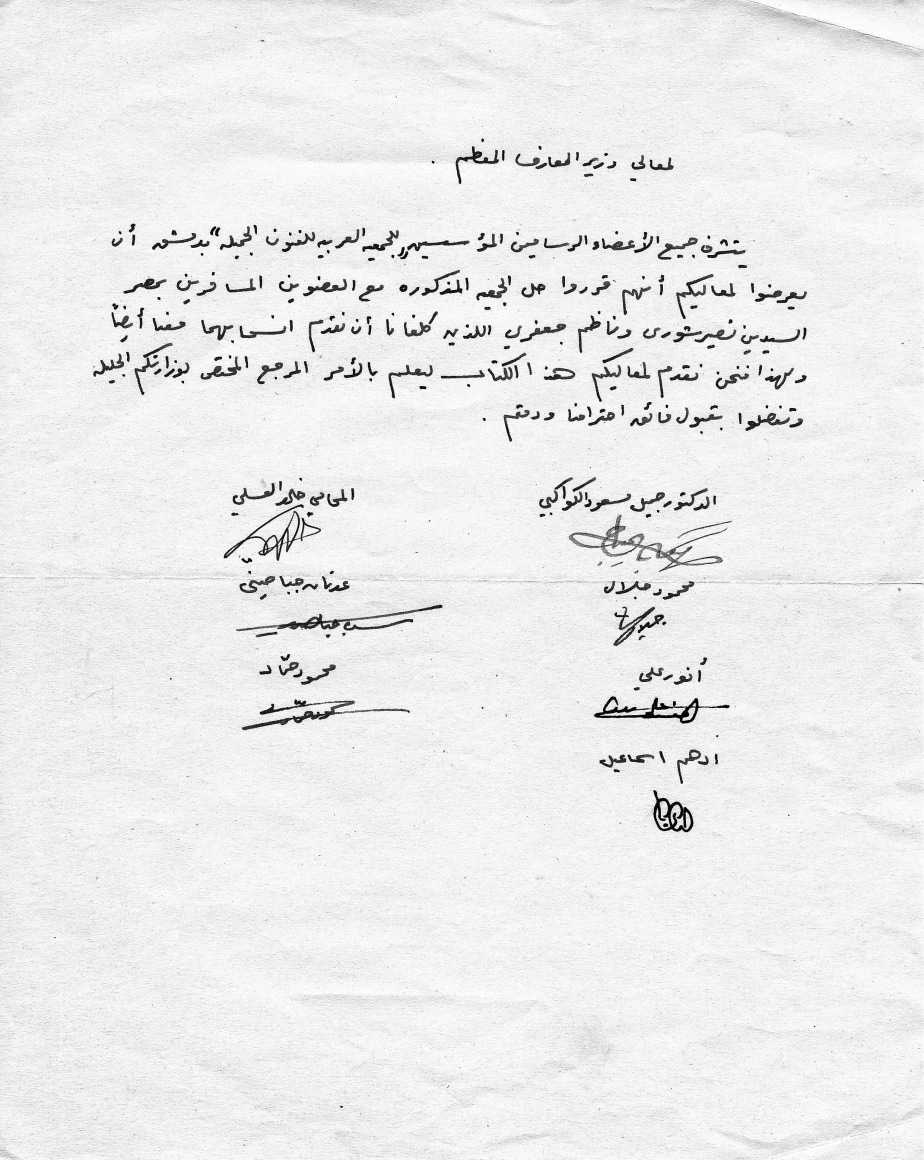 لمعالي وزير المعارف المعظم .
يتشرف جميع الأعضاء الرسامين المؤسسين „للجمعيه العربيه للفنون الجميله" بدمشق أن
يعرضوا لمعاليكم أنهم قرروا حل الجمعيه المذكوره مع العضوين المسافرين بمصر
السيدين نصير شورى وناظم جعفري اللذين كلفانا أن نقدم انسحابهما معنا أيضاً
وبهذا فنحن نقدم لمعاليكم هذا الكتاب ليعلم بالأمر المرجع المختص بوزارتكم الجليله
وتفضلوا بقبول فائق احترامنا ودمتم .
الدكتور جميل مسعود الكواكبي
المحامي خالد العسلي
محمود جلال
عدنان جباصيني
جلال
أنور علي
محمود حمّاد
ادهم اسماعيل